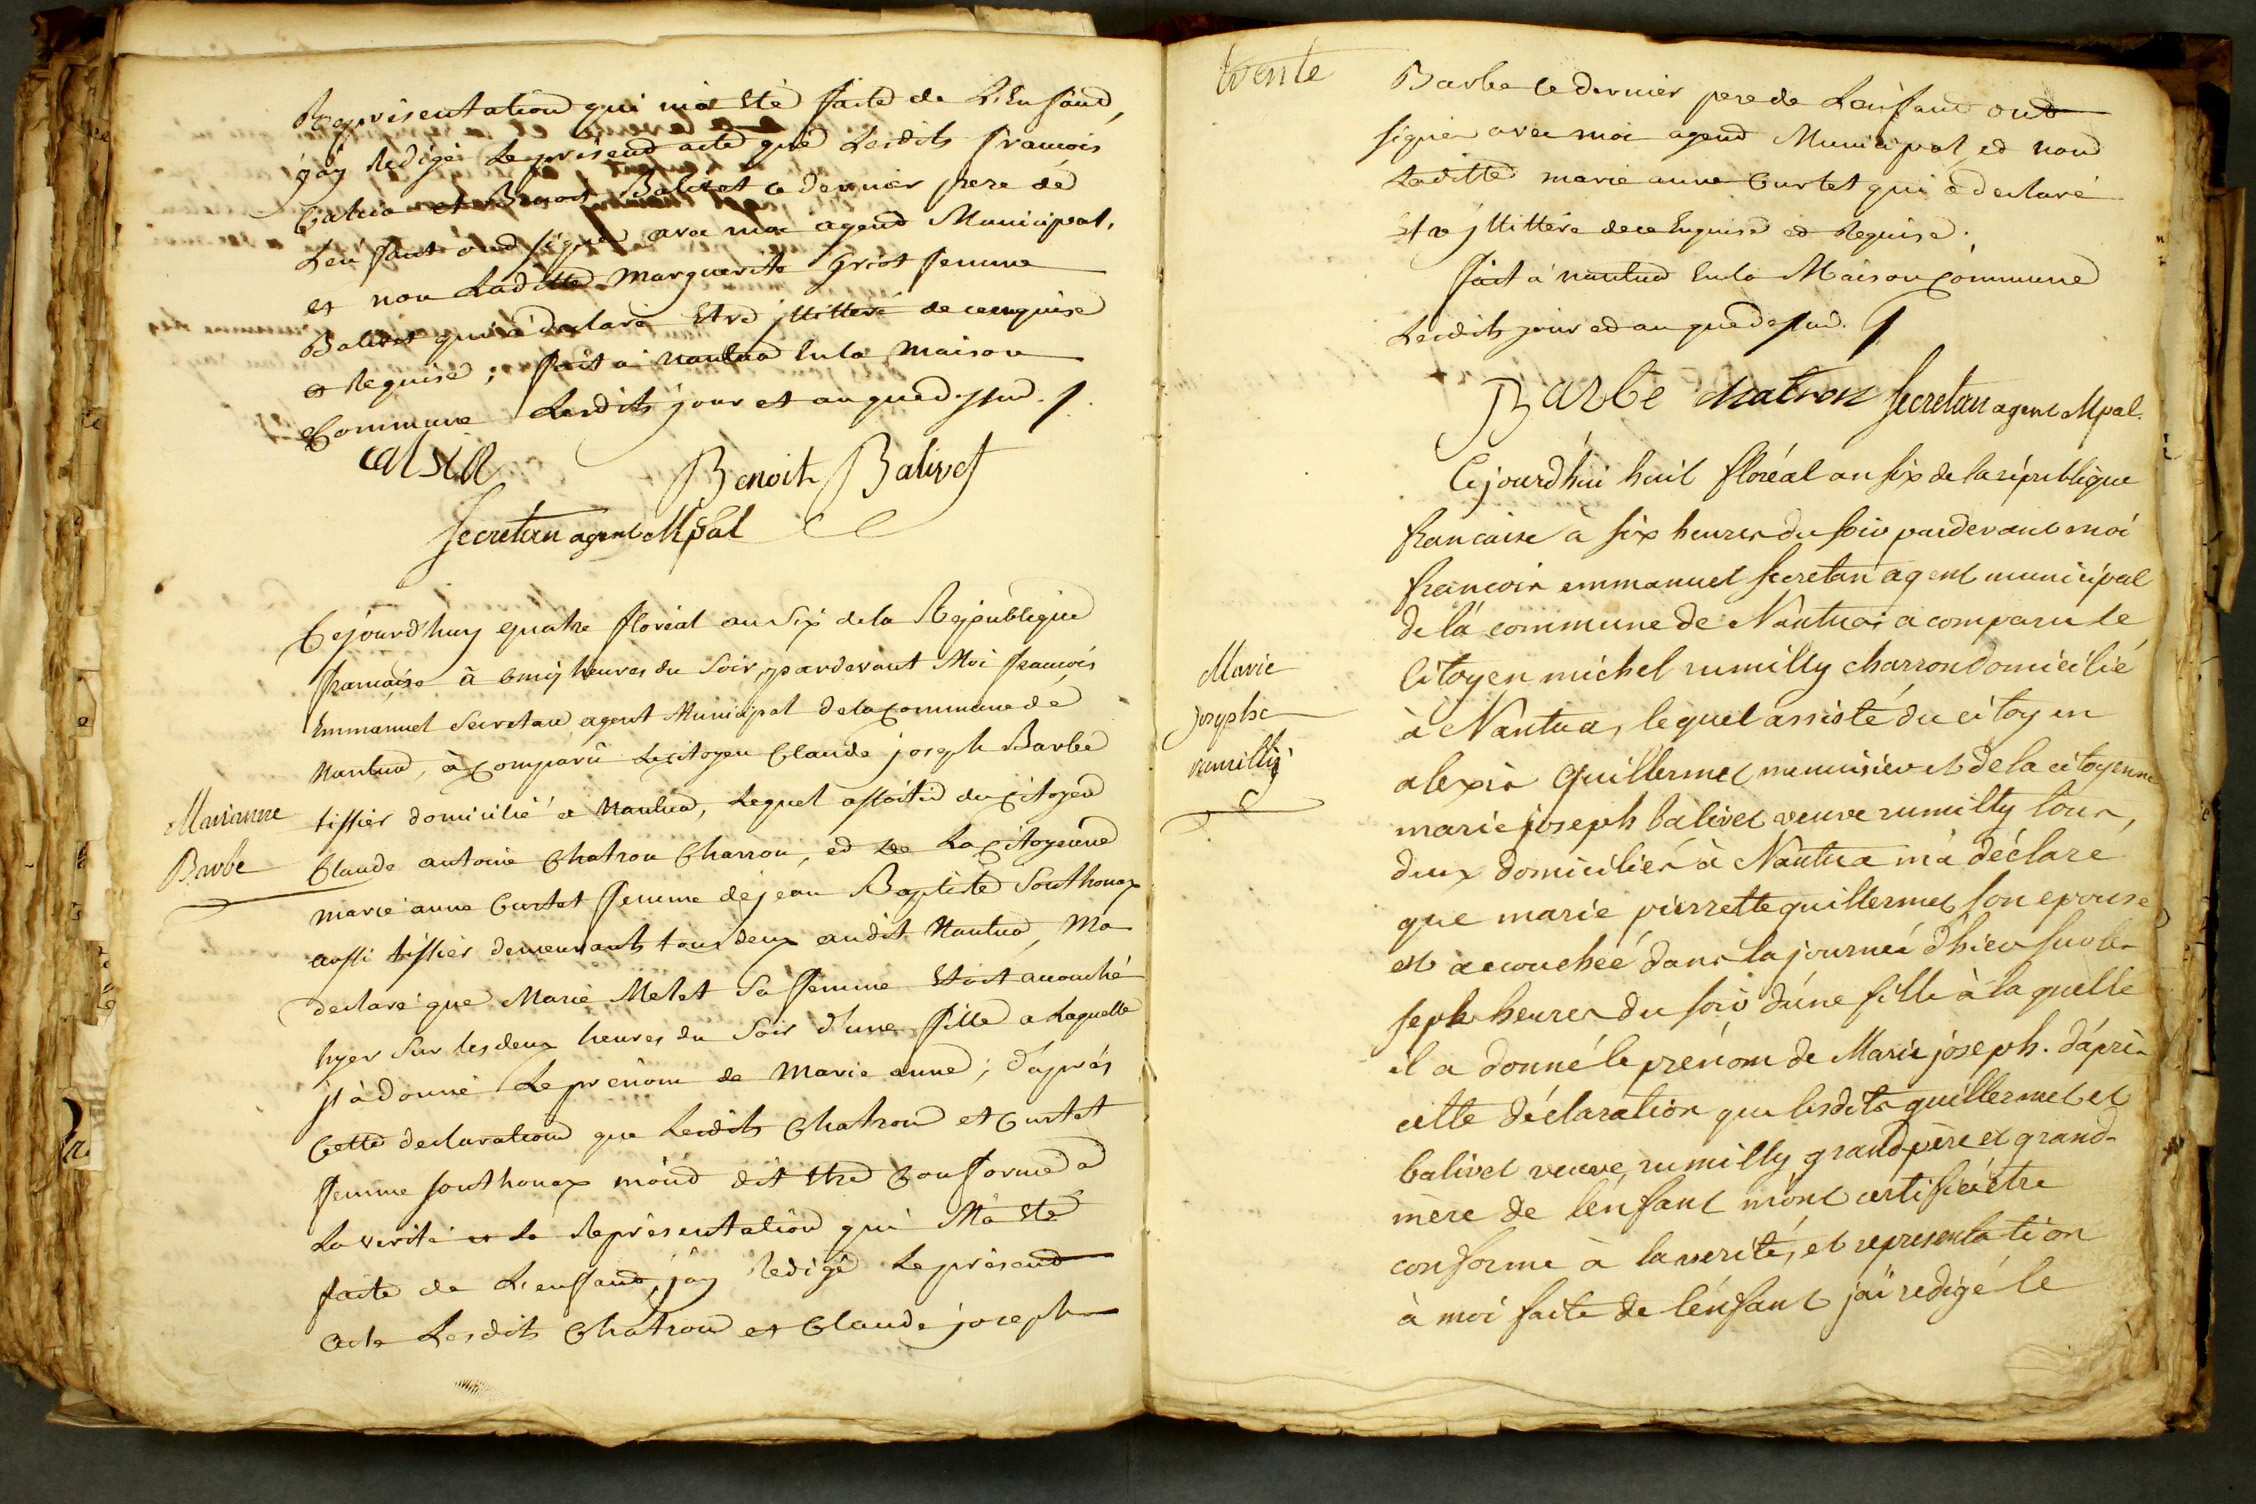 Représentation qui m'a Eté faite de L'Enfand,
j'ay Redigés Le présend acte que Lesdits francois
Calsia et Benoit Balivet ce dernier pere de
L'enfant ond signé avec moi agend Municipal,
et non Laditte Marguerite griot femme
Balivet qui a déclaré Etre jllitteré de ce enquise
et Requise ; fait a Nantua En la Maison
Commune Lesdits jour et an que dessus. /.
Calsia
Benoit Balivet
Secretan agent Mpal
Cejourd'huy quatre floréal an Six de la Republique
francaise à cinq heures du Soir, pardevant Moi francois
Emmanuel Secretan agent Municipal de la Commune de
Nantua, à Comparû Le Citoyen Claude joseph Barbe
Marianne
Barbe
tissier domicilié a Nantua, Lequel assistéd du Citoyen
Claude antoine Chatron Charron, ed La Citoyenne
marie anne Curtet femme de jean Baptiste Southonax
aussi tissier demeurants tous deux audit Nantua, Ma
declaré que Marie Melet Sa femme Etoit accouché
hyer Sur les deux heures du Soir d'une fille a Laquelle
jl à donné Le prénom de Marie anne ; d'après
Cette declarationd que Lesdits Chatrond et Curtet
femme Southonax m'ond dit Etre Conforme a
La verité et La Représentation qui M'a Eté
faite de L'enfand, j'ay Redigé Le présend
acte Lesdits Chatrond et Claude joseph
trente
Barbe ce dernier pere de L'enfand ond
signé avec moi agend Municipal, ed nond
Laditte marie anne Curtet qui a declaré
Etre jllitteré de ce Enquise ed Requise.
fait a Nantua En la Maison Commune
Lesdits jour ed an que dessus. /.
Barbe chatron Secretan agent Mpal.
Cejourd'hui huit floréal an six de la république
francaise à six heures du soir pardevant moi
francois emmanuel Secretan agent municipal
de la commune de Nantua a comparu le
Marie
josephe
rumilly
Citoyen michel rumilly charron domicilié
à Nantua, lequel assisté du citoyen
alexis Guillermet menuisier et de la citoyenne
marie joseph balivet veuve rumilly tous
deux domiciliés à Nantua m'a déclaré
que marie pierrette guillermet son epouse
est accouchée dans la journée d'hier sur les
sept heures du soir d'une fille à laquelle
il a donné le prénom de Marie joseph. d'après
cette déclaration que lesdits guillermet et
balivet veuve rumilly grand père et grand-
mère de l'enfant m'ont certifié être
conforme à la verité, et représentation
à moi faite de l'enfant j'ai redigé le